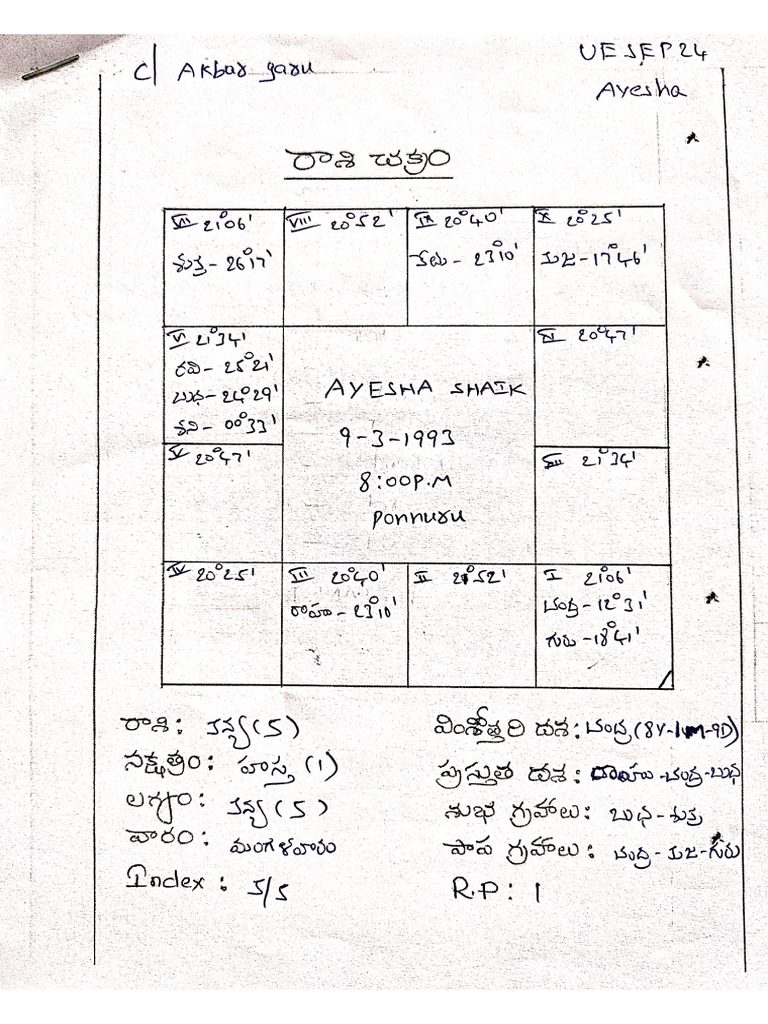 C/ Akbar garu
UE SEP 24
Ayesha
రాశి చక్రం
VII 21°06'
శుక్ర - 26°17'
VIII 20°52'
IX 20°40'
కేతు - 23°10'
X 20°25'
కుజ - 17°46'
VI 21°34'
రవి - 25°21'
బుధ - 24°29'
శని - 00°33'
XI 20°47'
V 20°47'
XII 21°34'
AYESHA SHAIK
9-3-1993
8:00P.M
Ponnuru
IV 20°25'
III 20°40'
రాహు - 23°10'
II 20°52'
I 21°06'
చంద్ర - 12°31'
గురు - 18°41'
రాశి: కన్య (5)
వింశోత్తరి దశ: చంద్ర (8Y-1M-9D)
నక్షత్రం: హస్త (1)
ప్రస్తుత దశ: రాహు-చంద్ర-బుధ
లగ్నం: కన్య (5)
శుభ గ్రహాలు: బుధ-శుక్ర
వారం: మంగళవారం
పాప గ్రహాలు: చంద్ర-కుజ-గురు
Index: 5/5
R.P: 1